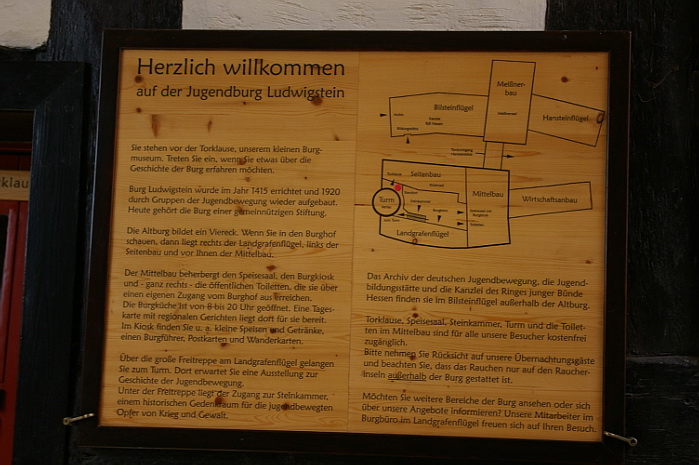 Herzlich willkommen
auf der Jugendburg Ludwigstein
Sie stehen vor der Torklause, unserem kleinen Burg-
museum. Treten Sie ein, wenn Sie etwas über die
Geschichte der Burg erfahren möchten.
Burg Ludwigstein wurde im Jahr 1415 errichtet und 1920
durch Gruppen der Jugendbewegung wieder aufgebaut.
Heute gehört die Burg einer gemeinnützigen Stiftung.
Die Altburg bildet ein Viereck. Wenn Sie in den Burghof
schauen, dann liegt rechts der Landgrafenflügel, links der
Seitenbau und vor Ihnen der Mittelbau.
Der Mittelbau beherbergt den Speisesaal, den Burgkiosk
und - ganz rechts - die öffentlichen Toiletten, die sie über
einen eigenen Zugang vom Burghof aus erreichen.
Die Burgküche ist von 8 bis 20 Uhr geöffnet. Eine Tages-
karte mit regionalen Gerichten liegt dort für sie bereit.
Im Kiosk finden Sie u. a. kleine Speisen und Getränke,
einen Burgführer, Postkarten und Wanderkarten.
Über die große Freitreppe am Landgrafenflügel gelangen
Sie zum Turm. Dort erwartet Sie eine Ausstellung zur
Geschichte der Jugendbewegung.
Unter der Freitreppe liegt der Zugang zur Steinkammer,
einem historischen Gedenkraum für die jugendbewegten
Opfer von Krieg und Gewalt.
Meißner-
bau
Bilsteinflügel
Hansteinflügel
Seitenbau
Mittelbau
Wirtschaftsanbau
Turm
Landgrafenflügel
Das Archiv der deutschen Jugendbewegung, die Jugend-
bildungsstätte und die Kanzlei des Ringes junger Bünde
Hessen finden sie im Bilsteinflügel außerhalb der Altburg.
Torklause, Speisesaal, Steinkammer, Turm und die Toilet-
ten im Mittelbau sind für alle unsere Besucher kostenfrei
zugänglich.
Bitte nehmen Sie Rücksicht auf unsere Übernachtungsgäste
und beachten Sie, dass das Rauchen nur auf den Raucher-
inseln außerhalb der Burg gestattet ist.
Möchten Sie weitere Bereiche der Burg ansehen oder sich
über unsere Angebote informieren? Unsere Mitarbeiter im
Burgbüro im Landgrafenflügel freuen sich auf Ihren Besuch.